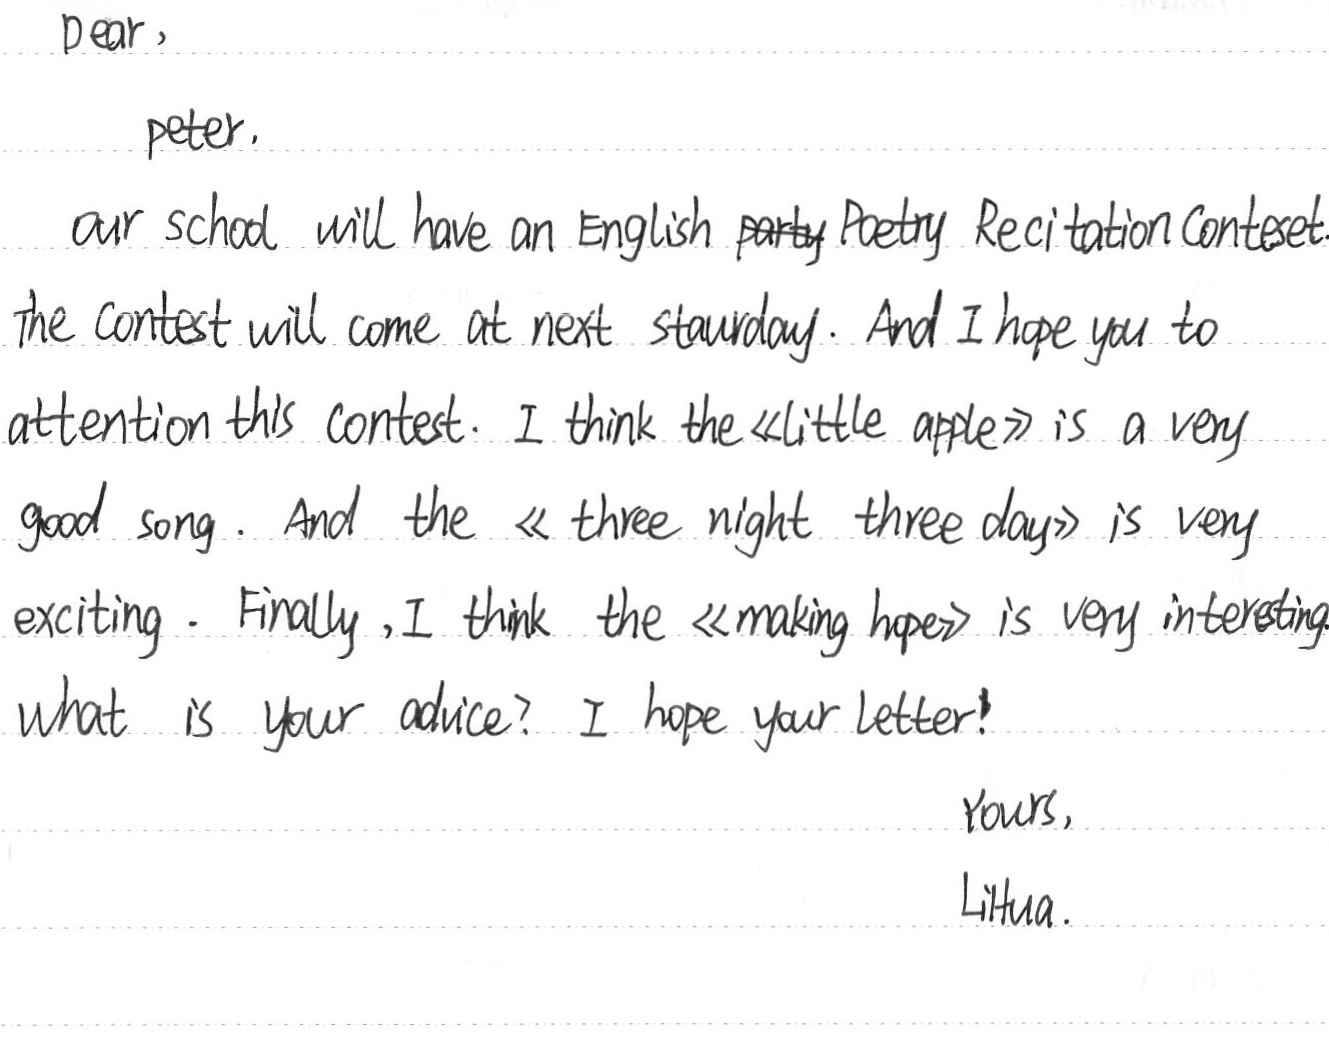 Dear,
peter.
our school will have an English party Poetry Recitation Conteset.
The contest will come at next staurday. And I hope you to
attention this contest. I think the «little apple» is a very
good song. And the « three night three day» is very
exciting. Finally, I think the «making hope» is very interesting.
what is your advice? I hope your letter!
Yours,
LiHua.